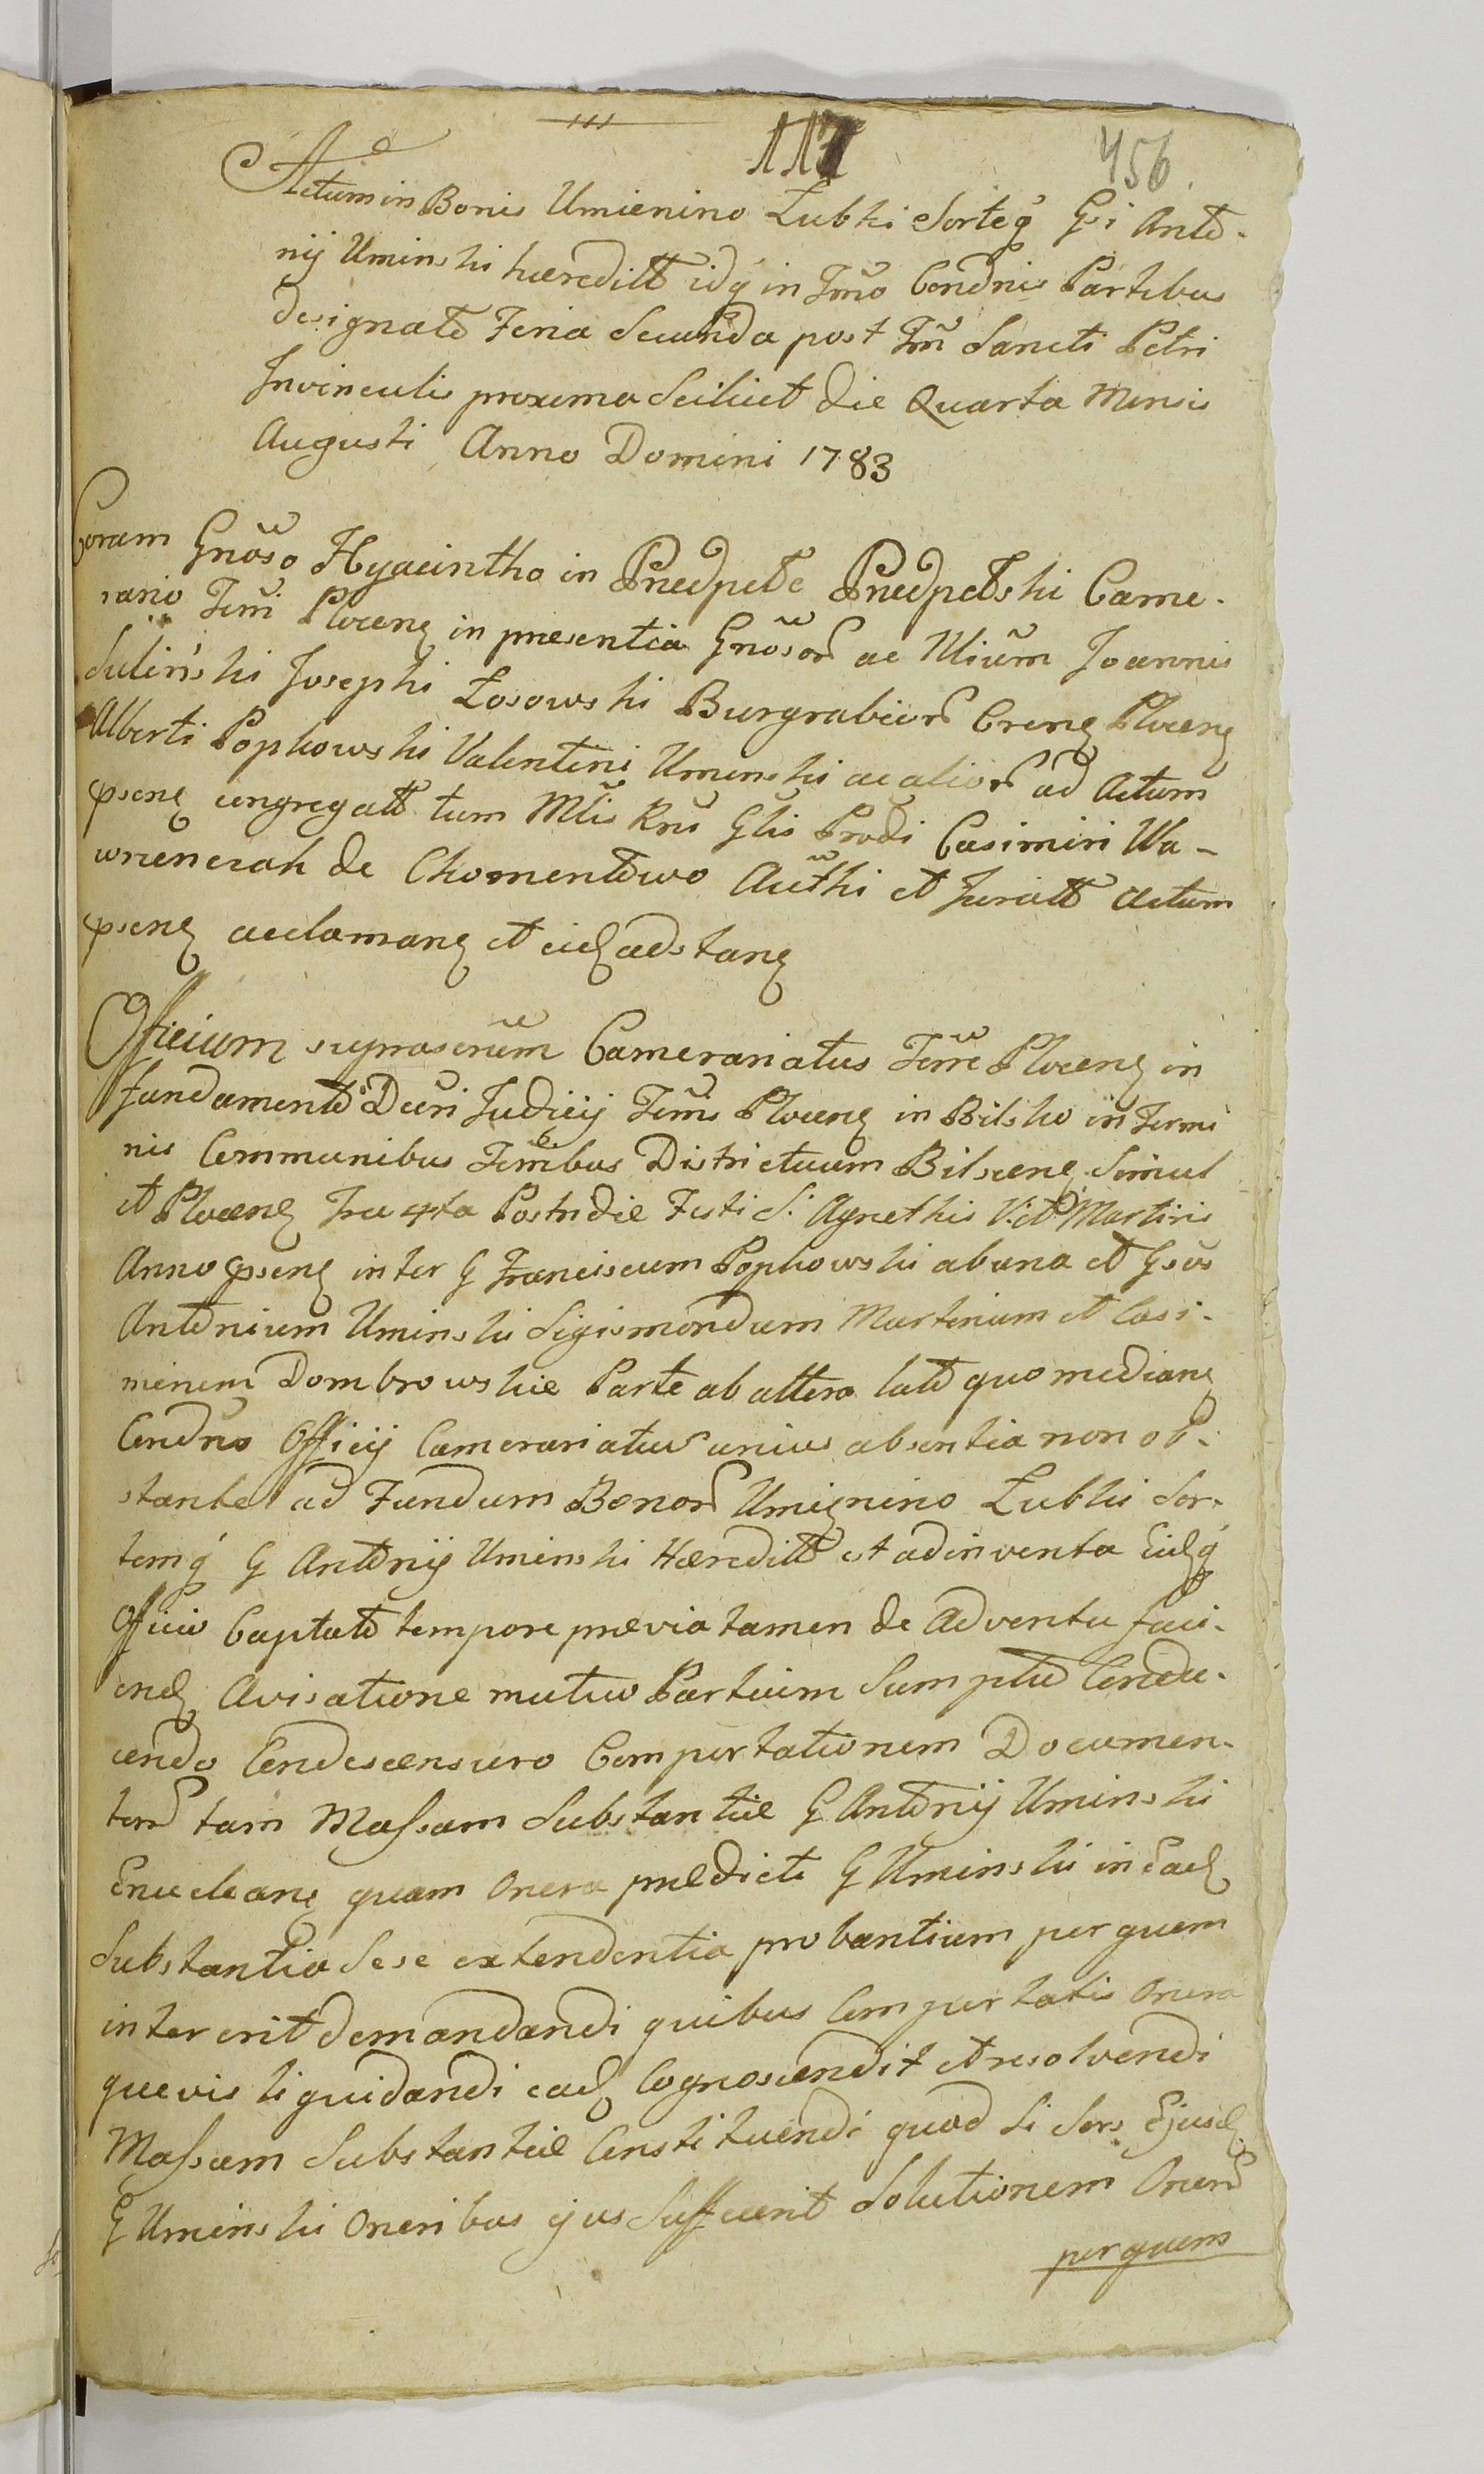 117 456
Actum in Bonis Umienino Lubki Sorteq Gsi Anto-
nij Uminski hæreditt idq in Tmo Condnis Partibus
designato Feria Secunda post Tm Sancti Petri
Invinculis proxima Scilicet die Quarta Mensis
Augusti Anno Domini 1783
Coram Gnoso Hyacintho in Przedpełce Przedpełski Came-
rario Terri Plocens in presentia Gnosor ac Nlium Joannis
Sulinski Josephi Losowski Burgrabior Crens Plocens
Alberti Popkowski Valentini Uminski ac alior ad Actum
psens congregatt tum Mlis Rni Glis Prodi Casimiri Wa-
wrzenczak de Chomentowo Authi et Juratt Actum
psens acclamans et eid adstans
Officium suprascrum Camerariatus Terræ Plocens in
fundamento Dcri Judicij Terris Plocens in Bilsko in Termi
nis Communibus Terribus Districtuum Bilscens Simul
et Plocens Fra 4ta Postridie Festi S. Agnethis V: et Martiris
Anno psens inter G Franciscum Popkowski ab una et Gsos
Antonium Uminski Sigismondum Martinum et Casi-
mirum Dombrowskie Parte ab altera lato quo medians
Condno Officij Camerariatus unius absentia non ob-
stante ad Fundum Bonor Umienino Lubki Sor-
temq G Antonij Uminski Hæreditt et adinventa Eidq
Officio Captato tempore prævia tamen de Adventu faci-
end Avisatione mutuo Partium Sumptu Condu-
cendo Condescensuro Comportationem Documen-
tor tam Massam Substantiæ G Antonij Uminski
Enucleans quam Onera prædicti G Uminski in Ead
Substantia Sese extendentia probantium per quem
intererit demandandi quibus Comportatis Onera
quevis liquidandi ead Cognoscendi et resolvendi
Massam Substantiæ Constituendi quod si Sors Ejusd
G Uminski Oneribus ejus Suffecerit Solutionem Oner
per quem